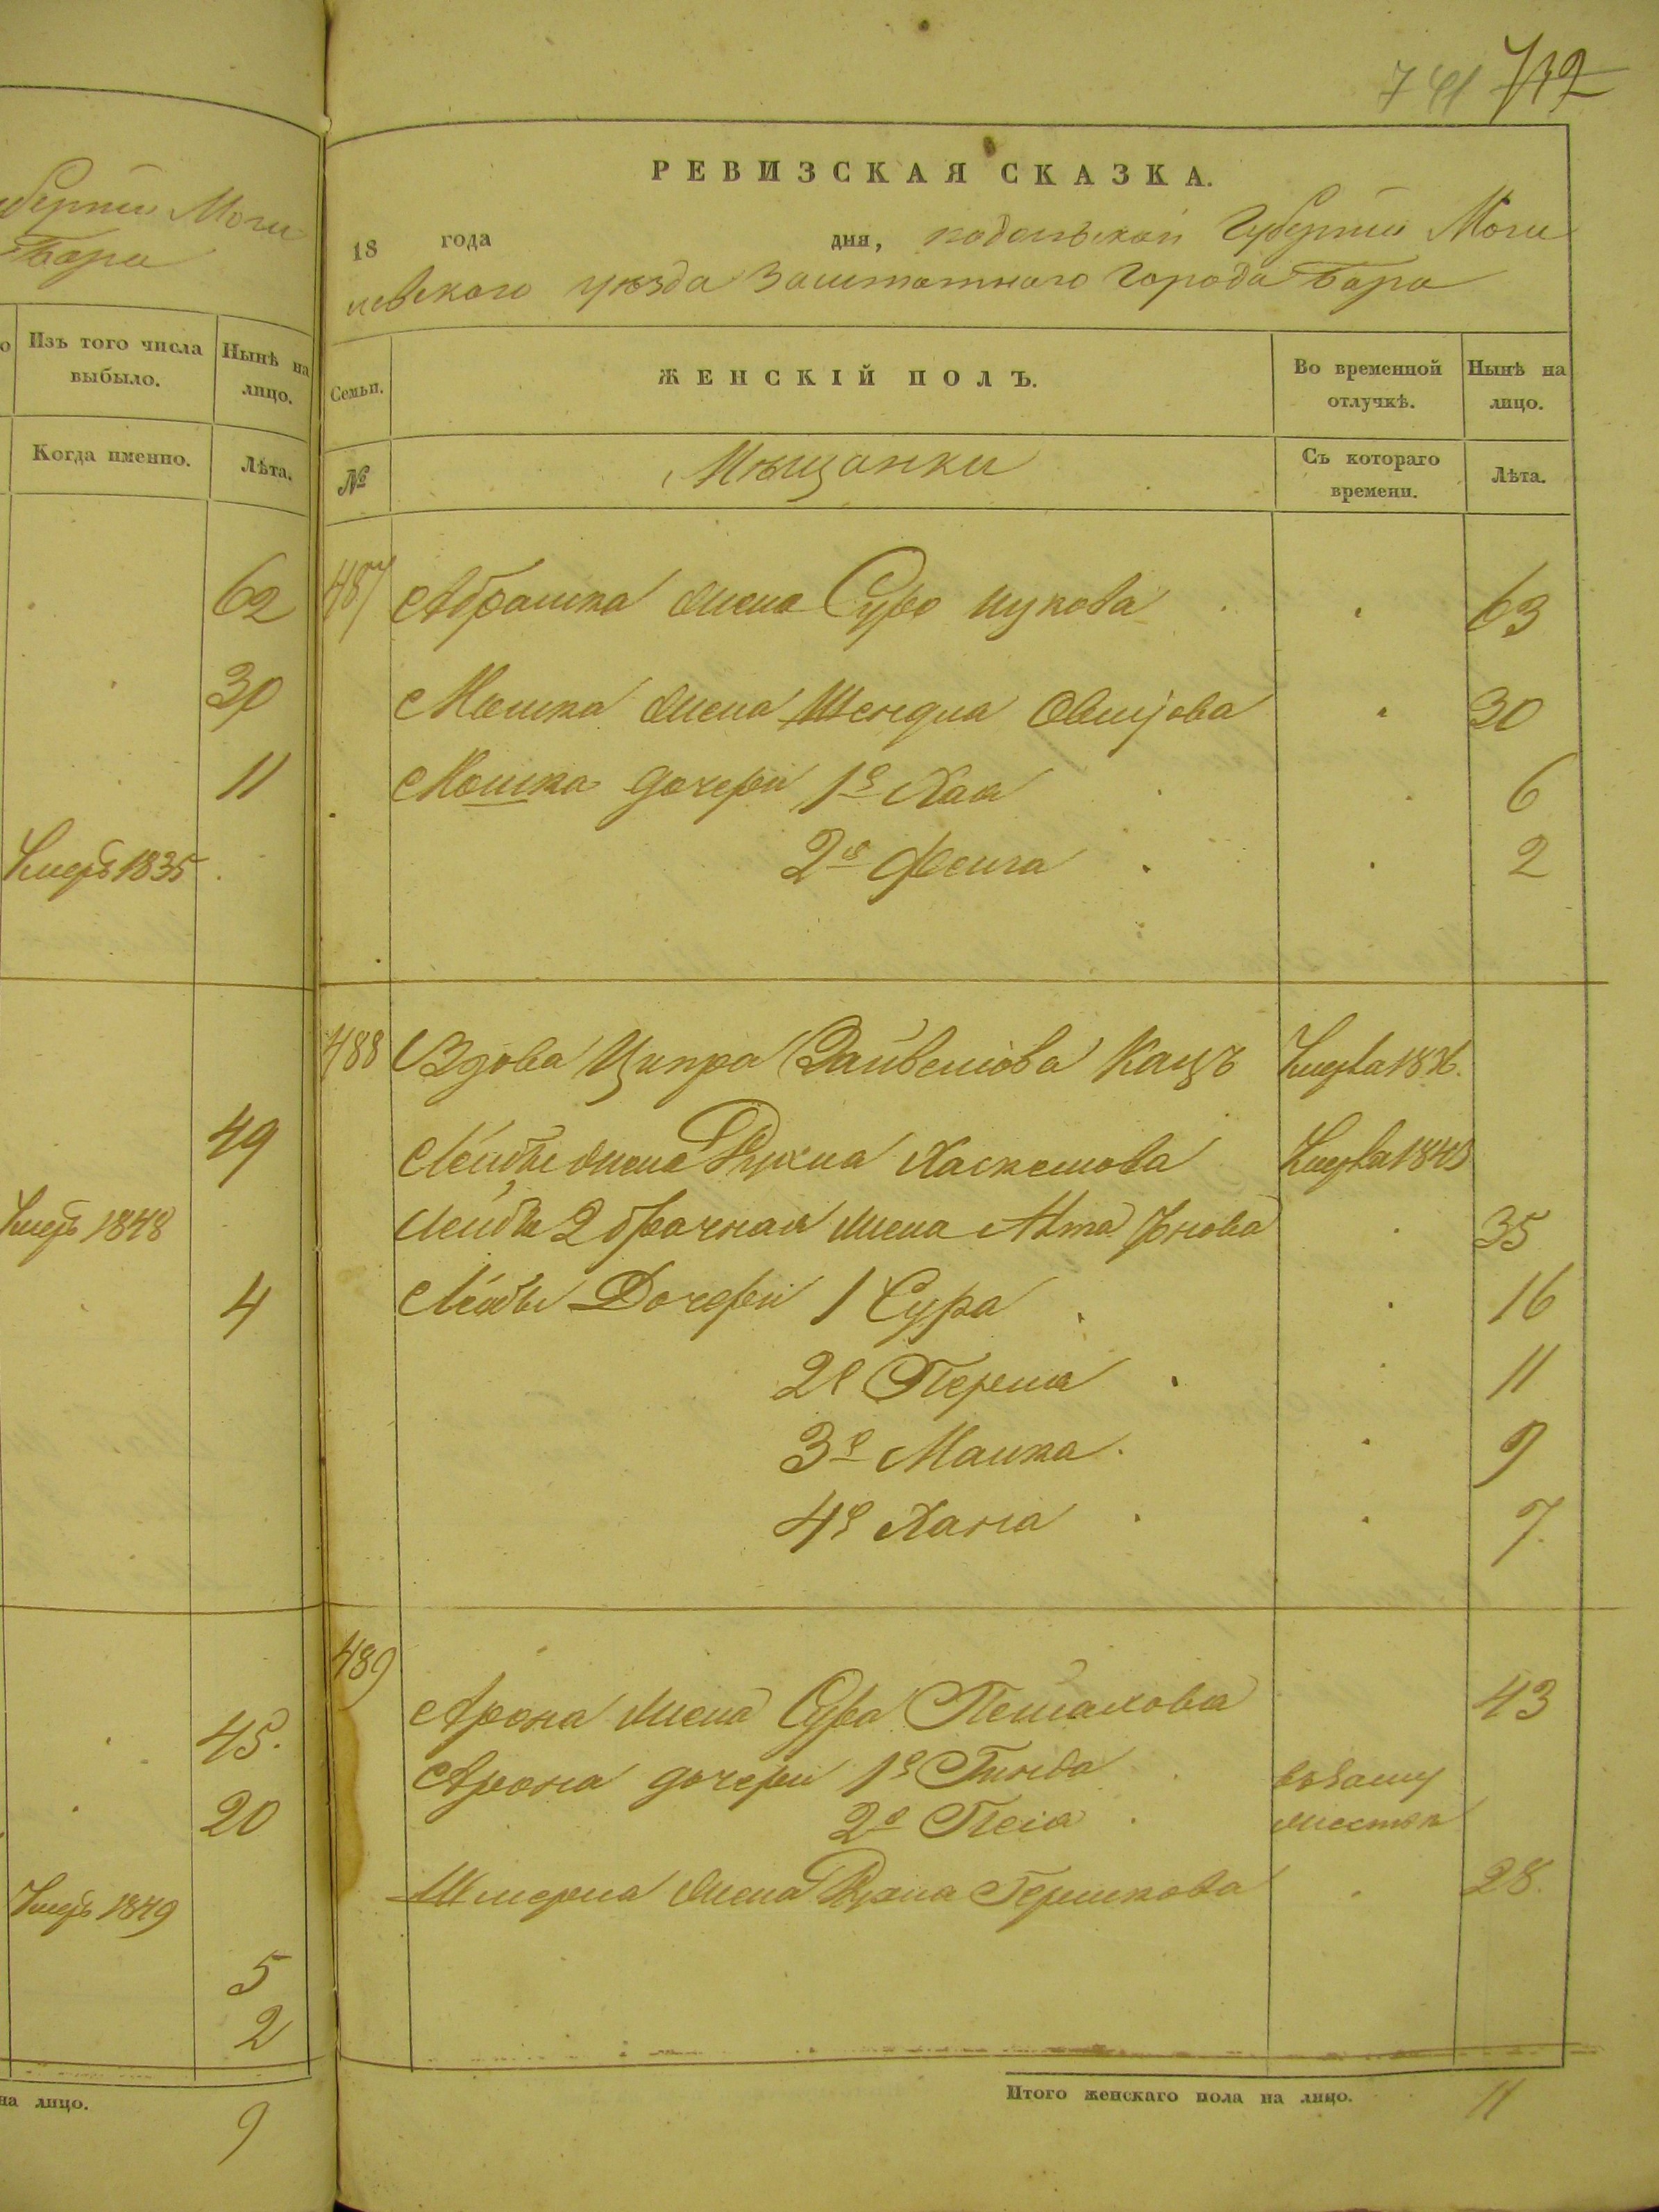 741 712
губернии Моги
Бара
Изъ того числа выбыло.
Нынѣ на лицо.
Когда именно.
Лѣта.
62
30
11
умеръ 1835
49
умеръ 1848
4
45.
20
умеръ 1849
5
2
на лицо.
9
РЕВИЗСКАЯ СКАЗКА.
18 года дня, подольской Губернии Моги
левского уѣзда Заштатного Города Бара
Семьи.
ЖЕНСКІЙ ПОЛЪ.
Во временной отлучкѣ.
Нынѣ на лицо.
№
Мѣщанки
Съ котораго времени.
Лѣта.
487 Абрамка жена Сура 63
Мошка жена Шендла 30
Мошка дочери 1е Хая 6
2я Фейга 2
488 Вдова Ципра Кацъ умерла 1836.
Лейбы жена Рухла Хаскелова умерла
Лейбы 2 брачная жена 35
Лейбы Дочери 1 Сура 16
2е Перла 11
3е Малка 9
4е Хана 7.
489
Арона жена Сура 43
Арона дочери 1е
2е Песя
Шмерла жена Рухла Гершкова 28.
Итого женскаго пола на лицо. 11